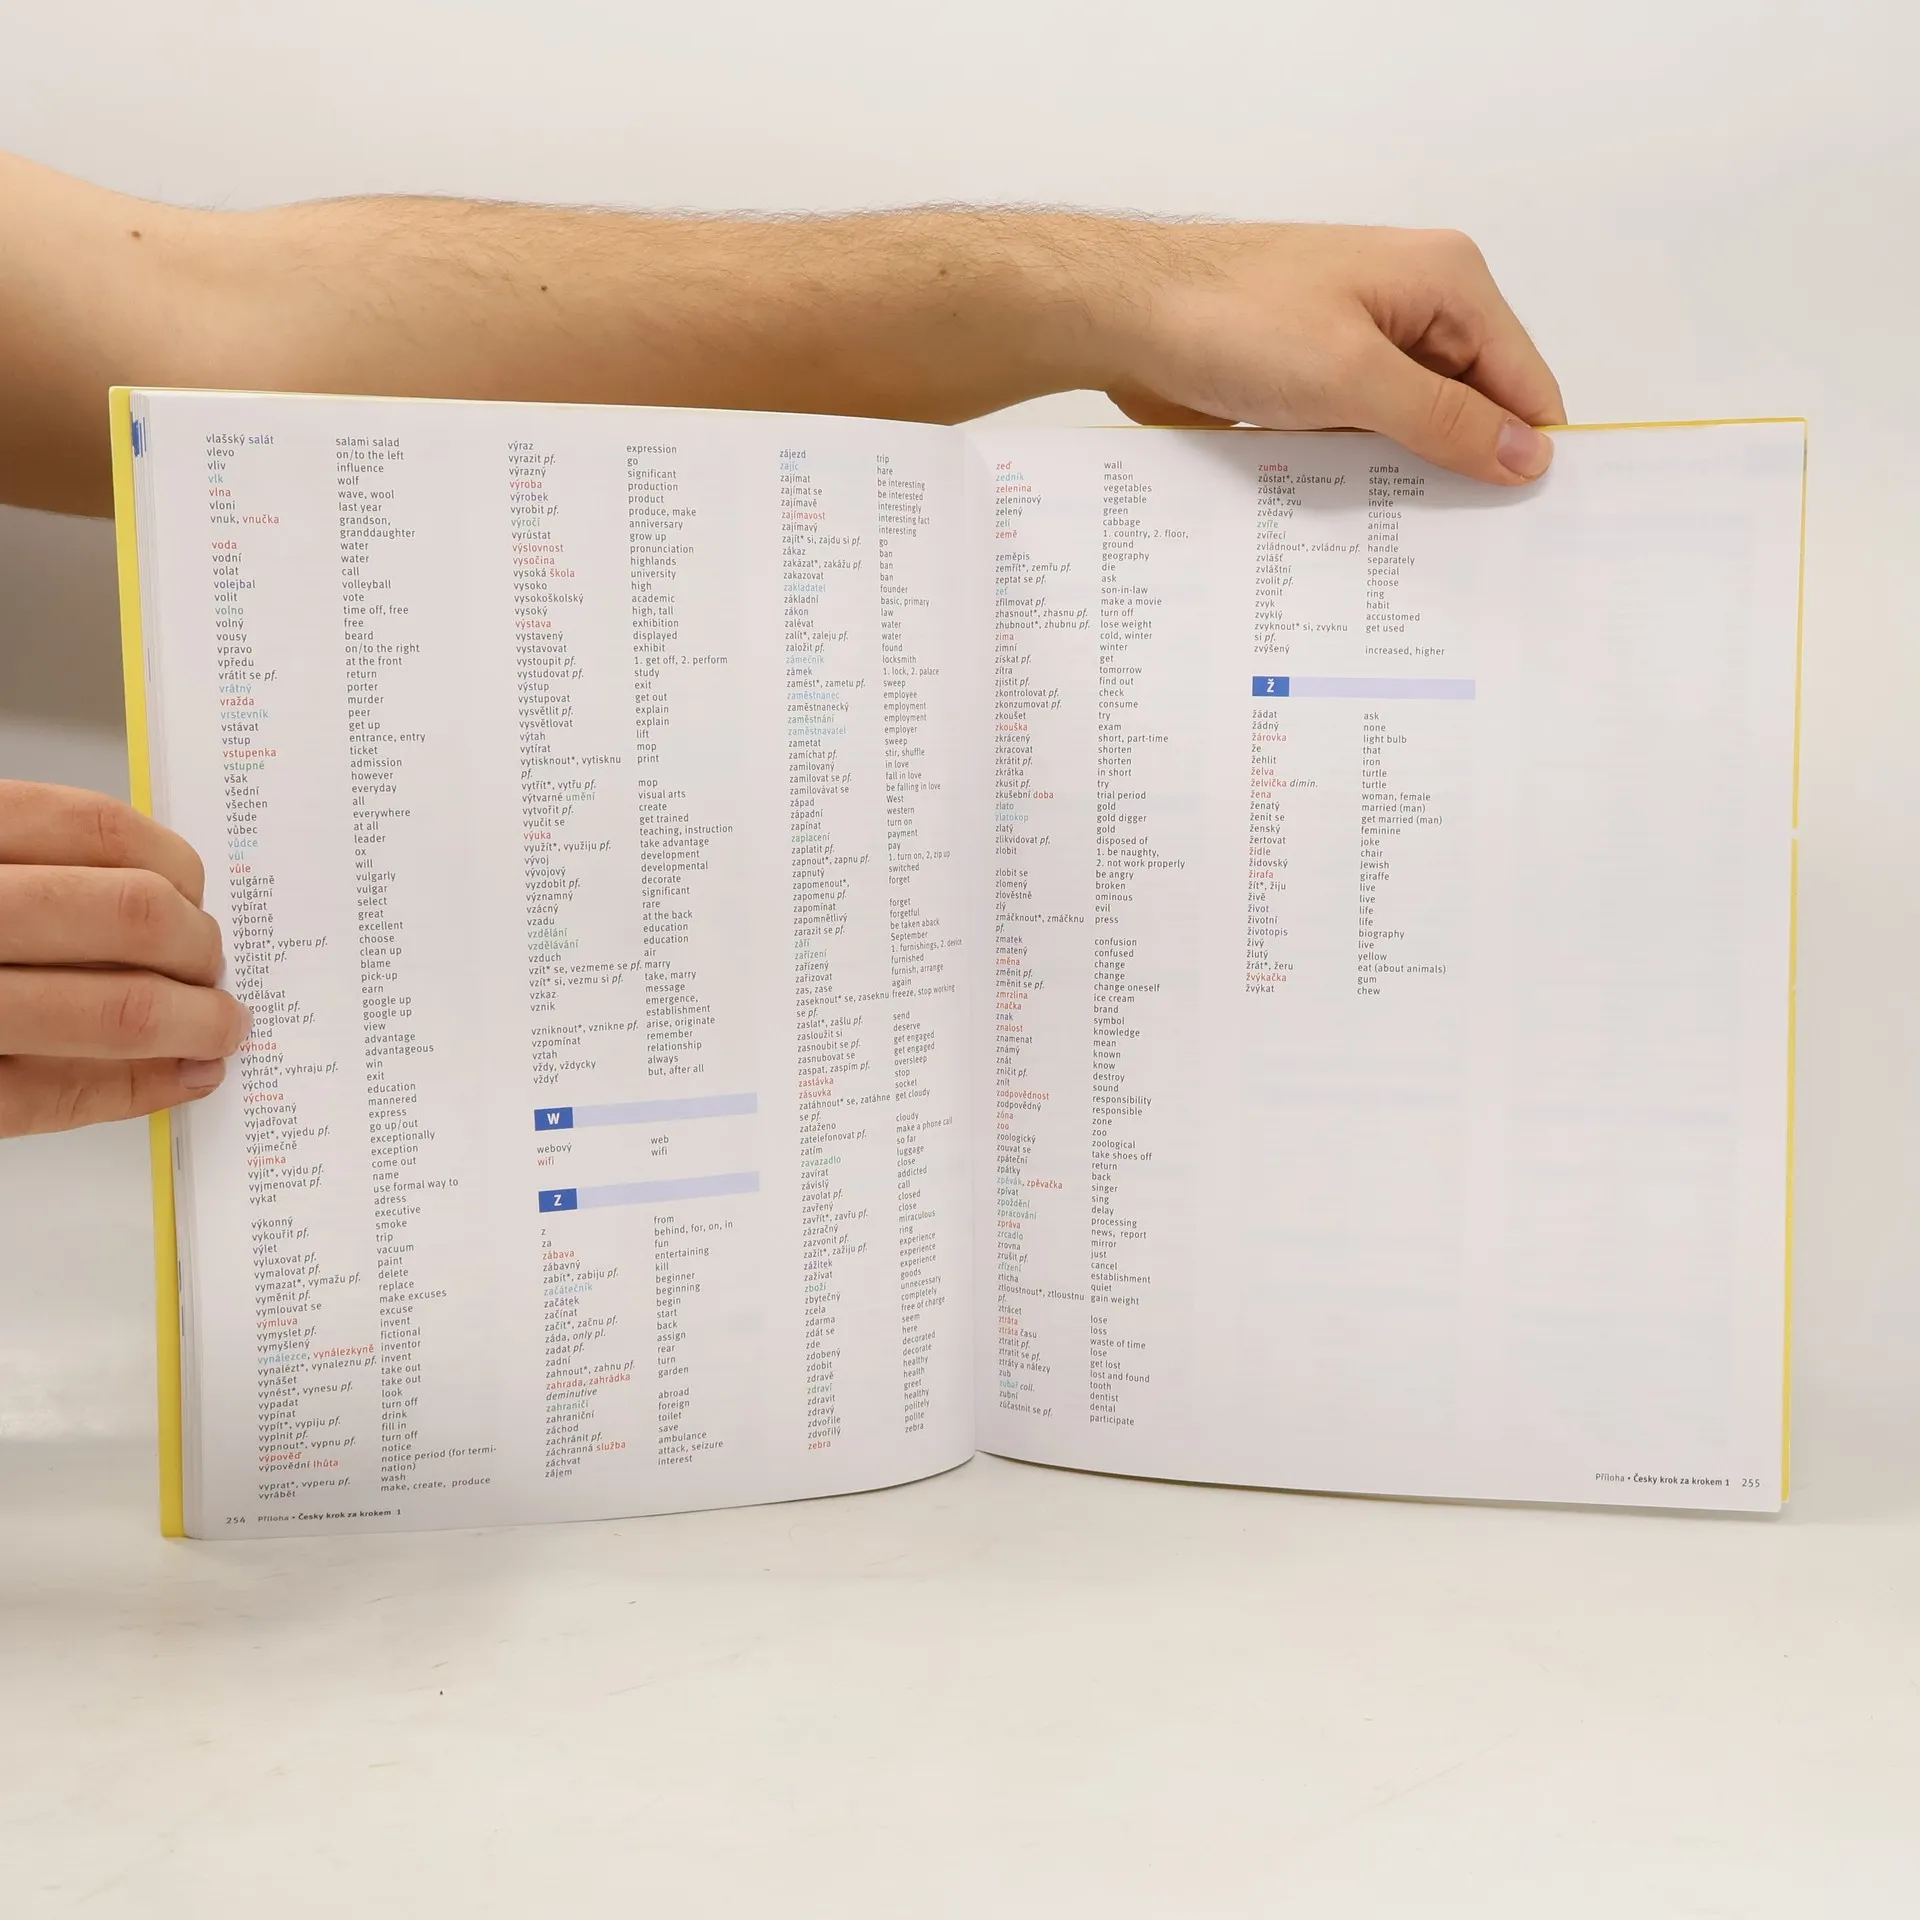 vlašský salát salami salad
vlevo on/to the left
vliv influence
vlk wolf
vlna wave, wool
vloni last year
vnuk, vnučka grandson,
granddaughter
voda water
vodní water
volat call
volejbal volleyball
volit vote
volno time off, free
volný free
vousy beard
vpravo on/to the right
vpředu at the front
vrátit se pf. return
vrátný porter
vražda murder
vrstevník peer
vstávat get up
vstup entrance, entry
vstupenka ticket
vstupné admission
však however
všední everyday
všechen all
všude everywhere
vůbec at all
vůdce leader
vůl ox
vůle will
vulgárně vulgarly
vulgární vulgar
vybírat select
výborně great
výborný excellent
vybrat*, vyberu pf. choose
vyčistit pf. clean up
vyčítat blame
výdej pick-up
vydělávat earn
googlit pf. google up
googlovat pf. google up
hled view
výhoda advantage
výhodný advantageous
vyhrát*, vyhraju pf. win
východ exit
výchova education
vychovaný mannered
vyjadřovat express
vyjet*, vyjedu pf. go up/out
výjimečně exceptionally
výjimka exception
vyjít*, vyjdu pf. come out
vyjmenovat pf. name
vykat use formal way to
adress
výkonný executive
vykouřit pf. smoke
výlet trip
vyluxovat pf. vacuum
vymalovat pf. paint
vymazat*, vymažu pf. delete
vyměnit pf. replace
vymlouvat se make excuses
výmluva excuse
vymyslet pf. invent
vymyšlený fictional
vynálezce, vynálezkyně inventor
vynalézt*, vynaleznu pf. invent
vynášet take out
vynést*, vynesu pf. take out
vypadat look
vypínat turn off
vypít*, vypiju pf. drink
vyplnit pf. fill in
vypnout*, vypnu pf. turn off
výpověď notice
výpovědní lhůta notice period (for termi-
nation)
vyprat*, vyperu pf. wash
vyrábět make, create, produce
254 Příloha • Česky krok za krokem 1
výraz expression
vyrazit pf. go
výrazný significant
výroba production
výrobek product
vyrobit pf. produce, make
výročí anniversary
vyrůstat grow up
výslovnost pronunciation
vysočina highlands
vysoká škola university
vysoko high
vysokoškolský academic
vysoký high, tall
výstava exhibition
vystavený displayed
vystavovat exhibit
vystoupit pf. 1. get off, 2. perform
vystudovat pf. study
výstup exit
vystupovat get out
vysvětlit pf. explain
vysvětlovat explain
výtah lift
vytírat mop
vytisknout*, vytisknu print
pf.
vytřít*, vytřu pf. mop
výtvarné umění visual arts
vytvořit pf. create
vyučit se get trained
výuka teaching, instruction
využít*, využiju pf. take advantage
vývoj development
vývojový developmental
vyzdobit pf. decorate
významný significant
vzácný rare
vzadu at the back
vzdělání education
vzdělávání education
vzduch air
vzít* se, vezmeme se pf. marry
vzít* si, vezmu si pf. take, marry
vzkaz message
vznik emergence,
establishment
vzniknout*, vznikne pf. arise, originate
vzpomínat remember
vztah relationship
vždy, vždycky always
vždyť but, after all
W
webový web
wifi wifi
Z
z from
za behind, for, on, in
zábava fun
zábavný entertaining
zabít*, zabiju pf. kill
začátečník beginner
začátek beginning
začínat begin
začít*, začnu pf. start
záda, only pl. back
zadat pf. assign
zadní rear
zahnout*, zahnu pf. turn
zahrada, zahrádka garden
deminutive
zahraničí abroad
zahraniční foreign
záchod toilet
zachránit pf. save
záchranná služba ambulance
záchvat attack, seizure
zájem interest
zájezd trip
zajíc hare
zajímat be interesting
zajímat se be interested
zajímavě interestingly
zajímavost interesting fact
zajímavý interesting
zajít* si, zajdu si pf. go
zákaz ban
zakázat*, zakážu pf. ban
zakazovat ban
zakladatel founder
základní basic, primary
zákon law
zalévat water
zalít*, zaleju pf. water
založit pf. found
zámečník locksmith
zámek 1. lock, 2. palace
zamést*, zametu pf. sweep
zaměstnanec employee
zaměstnanecký employment
zaměstnání employment
zaměstnavatel employer
zametat sweep
zamíchat pf. stir, shuffle
zamilovaný in love
zamilovat se pf. fall in love
zamilovávat se be falling in love
západ West
západní western
zapínat turn on
zaplacení payment
zaplatit pf. pay
zapnout*, zapnu pf. 1. turn on, 2, zip up
zapnutý switched
zapomenout*, forget
zapomenu pf.
zapomínat forget
zapomnětlivý forgetful
zarazit se pf. be taken aback
září September
zařízení 1. furnishings, 2. device
zařízený furnished
zařizovat furnish, arrange
zas, zase again
zaseknout* se, zaseknu freeze, stop working
se pf.
zaslat*, zašlu pf. send
zasloužit si deserve
zasnoubit se pf. get engaged
zasnubovat se get engaged
zaspat, zaspím pf. oversleep
zastávka stop
zásuvka socket
zatáhnout* se, zatáhne get cloudy
se pf.
zataženo cloudy
zatelefonovat pf. make a phone call
zatím so far
zavazadlo luggage
zavírat close
závislý addicted
zavolat pf. call
zavřený closed
zavřít*, zavřu pf. close
zázračný miraculous
zazvonit pf. ring
zažít*, zažiju pf. experience
zážitek experience
zažívat experience
zboží goods
zbytečný unnecessary
zcela completely
zdarma free of charge
zdát se seem
zde here
zdobený decorated
zdobit decorate
zdravě healthy
zdraví health
zdravit greet
zdravý healthy
zdvořile politely
zdvořilý polite
zebra zebra
zeď wall
zedník mason
zelenina vegetables
zeleninový vegetable
zelený green
zelí cabbage
země 1. country, 2. floor,
ground
zeměpis geography
zemřít*, zemřu pf. die
zeptat se pf. ask
zeť son-in-law
zfilmovat pf. make a movie
zhasnout*, zhasnu pf. turn off
zhubnout*, zhubnu pf. lose weight
zima cold, winter
zimní winter
získat pf. get
zítra tomorrow
zjistit pf. find out
zkontrolovat pf. check
zkonzumovat pf. consume
zkoušet try
zkouška exam
zkrácený short, part-time
zkracovat shorten
zkrátit pf. shorten
zkrátka in short
zkusit pf. try
zkušební doba trial period
zlato gold
zlatokop gold digger
zlatý gold
zlikvidovat pf. disposed of
zlobit 1. be naughty,
2. not work properly
zlobit se be angry
zlomený broken
zlověstně ominous
zlý evil
zmáčknout*, zmáčknu press
pf.
zmatek confusion
zmatený confused
změna change
změnit pf. change
změnit se pf. change oneself
zmrzlina ice cream
značka brand
znak symbol
znalost knowledge
znamenat mean
známý known
znát know
zničit pf. destroy
znít sound
zodpovědnost responsibility
zodpovědný responsible
zóna zone
zoo zoo
zoologický zoological
zouvat se take shoes off
zpáteční return
zpátky back
zpěvák, zpěvačka singer
zpívat sing
zpoždění delay
zpracování processing
zpráva news, report
zrcadlo mirror
zrovna just
zrušit pf. cancel
zřízení establishment
zticha quiet
ztloustnout*, ztloustnu gain weight
pf.
ztrácet lose
ztráta loss
ztráta času waste of time
ztratit pf. lose
ztratit se pf. get lost
ztráty a nálezy lost and found
zub tooth
zubař coll. dentist
zubní dental
zúčastnit se pf. participate
zumba zumba
zůstat*, zůstanu pf. stay, remain
zůstávat stay, remain
zvát*, zvu invite
zvědavý curious
zvíře animal
zvířecí animal
zvládnout*, zvládnu pf. handle
zvlášť separately
zvláštní special
zvolit pf. choose
zvonit ring
zvyk habit
zvyklý accustomed
zvyknout* si, zvyknu get used
si pf.
zvýšený increased, higher
Ž
žádat ask
žádný none
žárovka light bulb
že that
žehlit iron
želva turtle
želvička dimin. turtle
žena woman, female
ženatý married (man)
ženit se get married (man)
ženský feminine
žertovat joke
židle chair
židovský Jewish
žirafa giraffe
žít*, žiju live
živě live
život life
životní life
životopis biography
živý live
žlutý yellow
žrát*, žeru eat (about animals)
žvýkačka gum
žvýkat chew
Příloha • Česky krok za krokem 1 255